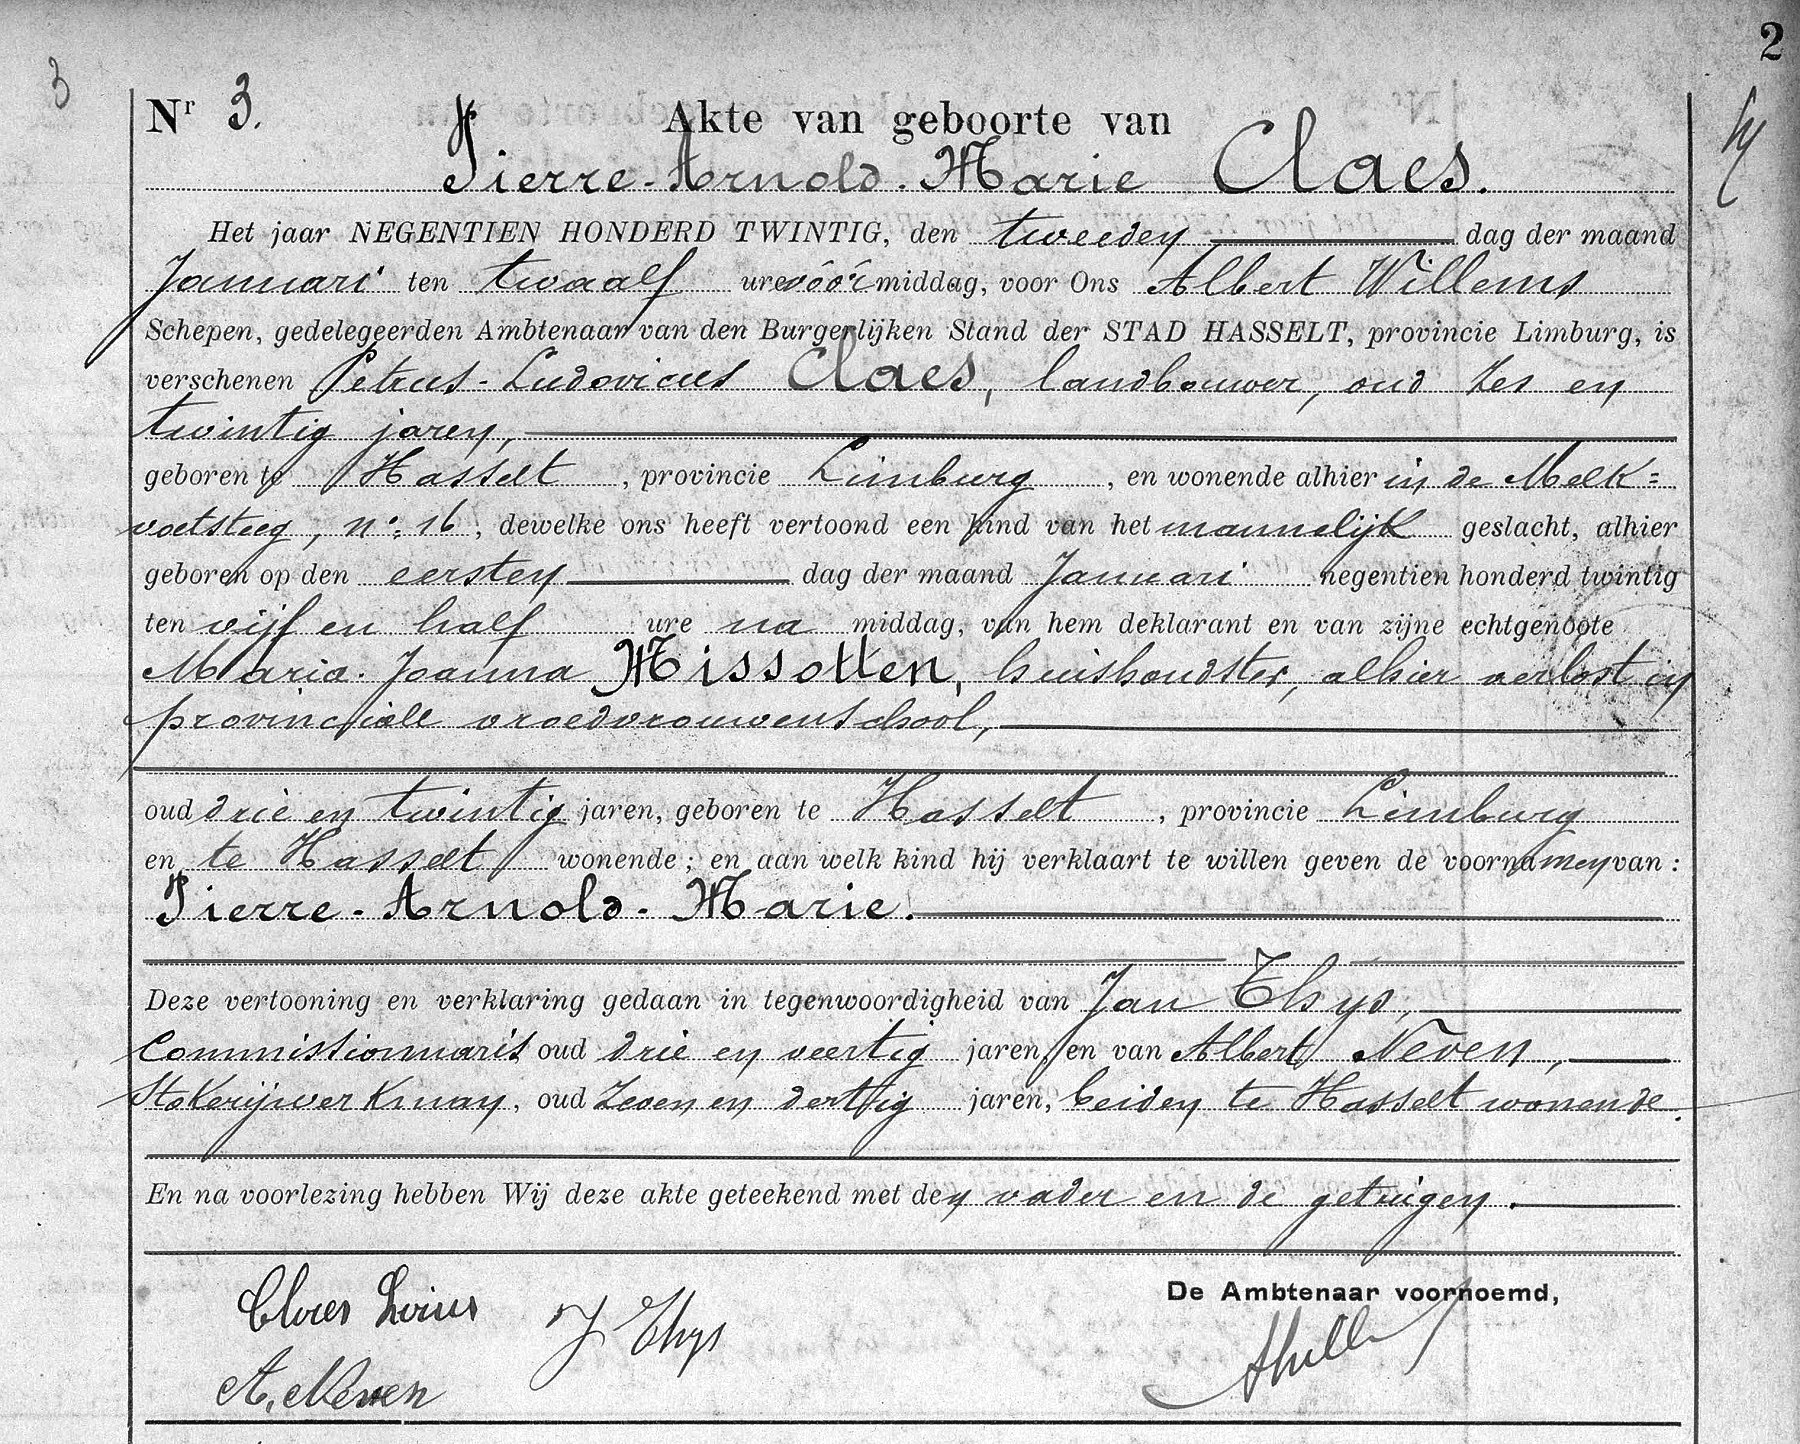 2
3
Nr 3. Akte van geboorte van
Pierre-Arnold-Marie Claes.
Het jaar NEGENTIEN HONDERD TWINTIG, den tweeden dag der maand
Januari ten twaalf ure vóór middag, voor Ons Albert Willems
Schepen, gedelegeerden Ambtenaar van den Burgerlijken Stand der STAD HASSELT, provincie Limburg, is
verschenen Petrus-Ludovicus Claes, landbouwer, oud zes en
twintig jaren,
geboren te Hasselt, provincie Limburg, en wonende alhier in de Melk=
voetsteeg, n° 16, dewelke ons heeft vertoond een kind van het mannelijk geslacht, alhier
geboren op den eersten dag der maand Januari negentien honderd twintig
ten vijf en half ure na middag, van hem deklarant en van zijne echtgenoote
Maria-Joanna Missotten, huishoudster, alhier verlost in
provinciale vroedvrouwenschool,
oud drie en twintig jaren, geboren te Hasselt, provincie Limburg
en te Hasselt wonende; en aan welk kind hij verklaart te willen geven de voornamen van:
Pierre-Arnold-Marie.
Deze vertooning en verklaring gedaan in tegenwoordigheid van Jan Thys,
Commissionnaris oud drie en veertig jaren, en van Albert Neven,
Stokerijwerkman, oud zeven en dertig jaren, beiden te Hasselt wonende.
En na voorlezing hebben Wij deze akte geteekend met den vader en de getuigen.
De Ambtenaar voornoemd,
Claes Louis J Thys
A. Neven